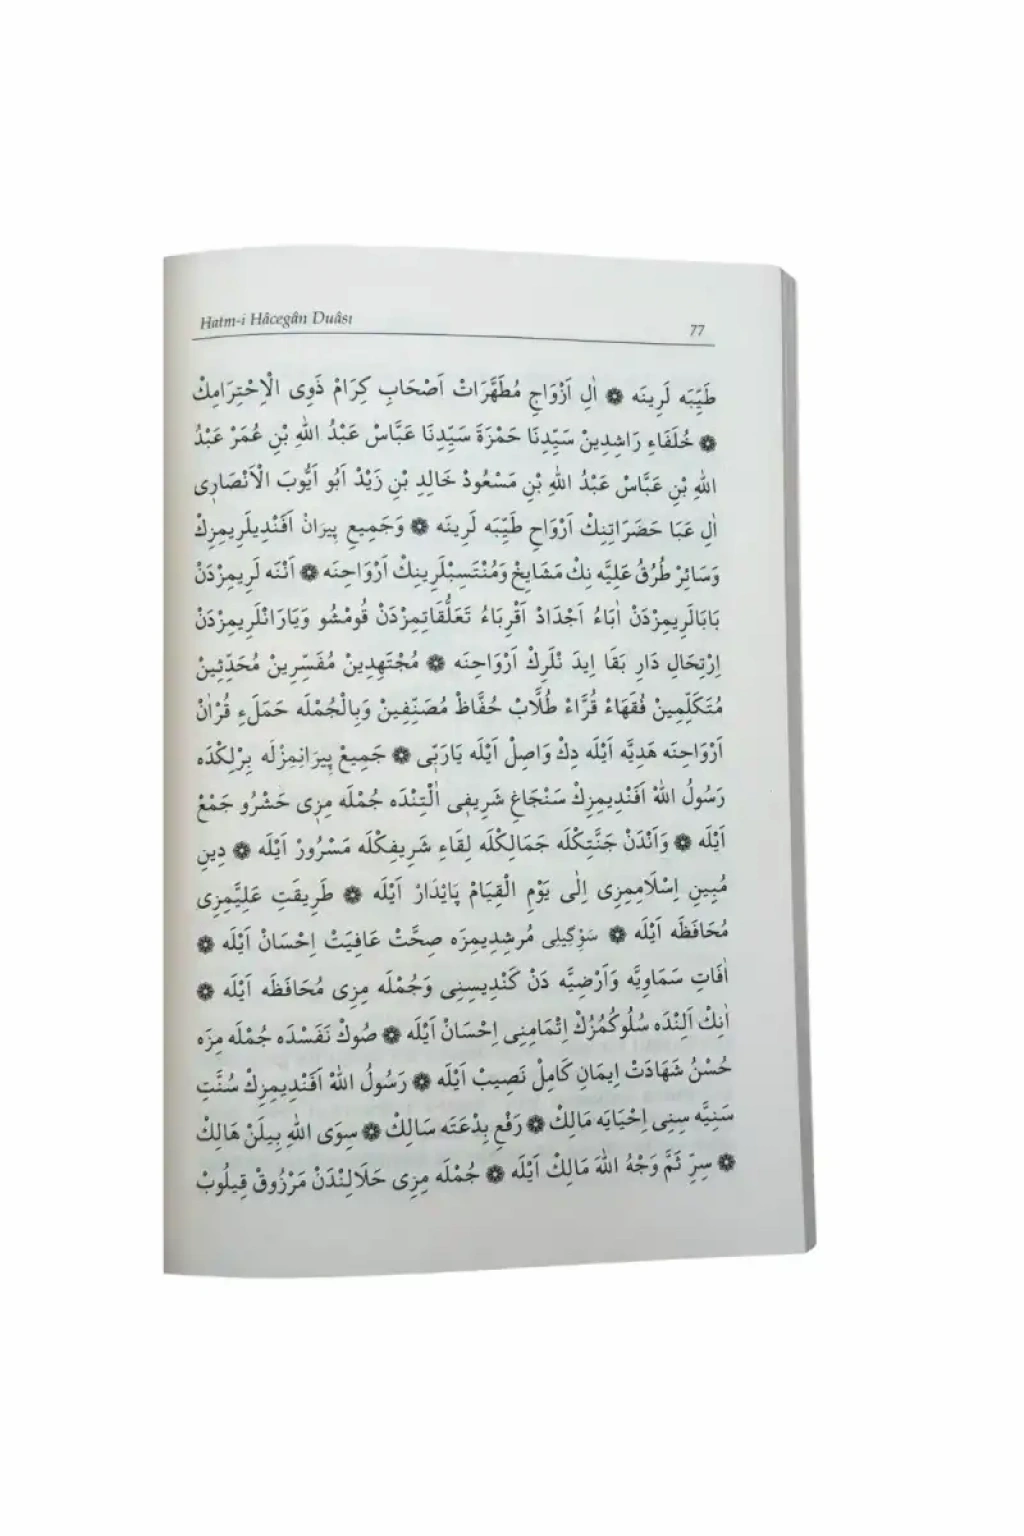 Hatm-i Hâcegân Duâsı
77
طَيِّبَه لَرِينَه ❁ اٰلِ اَزْوَاجِ مُطَهَّرَاتْ اَصْحَابِ كِرَامْ ذَوِى الْاِحْتِرَامِكْ
❁ خُلَفَاءِ رَاشِدِينْ سَيِّدِنَا حَمْزَةَ سَيِّدِنَا عَبَّاسْ عَبْدُ اللهِ بْنِ عُمَرْ عَبْدُ
اللهِ بْنِ عَبَّاسْ عَبْدُ اللهِ بْنِ مَسْعُودْ خَالِدِ بْنِ زَيْدْ اَبُو اَيُّوبَ الْاَنْصَارِى
اٰلِ عَبَا حَضَرَاتِنِكْ اَرْوَاحِ طَيِّبَه لَرِينَه ❁ وَجَمِيعِ پِيرَانْ اَفَنْدِيلَرِيمِزِكْ
وَسَائِرْ طُرُقُ عَلِيَّه نِكْ مَشَايِخْ وَمُنْتَسِبْلَرِينِكْ اَرْوَاحِنَه ❁ اَنْنَه لَرِيمِزْدَنْ
بَابَالَرِيمِزْدَنْ اٰبَاءْ اَجْدَادْ اَقْرِبَاءْ تَعَلُّقَاتِمِزْدَنْ قُومْشُو وَيَارَانْلَرِيمِزْدَنْ
اِرْتِحَالِ دَارِ بَقَا اِيدَ نْلَرِكْ اَرْوَاحِنَه ❁ مُجْتَهِدِينْ مُفَسِّرِينْ مُحَدِّثِينْ
مُتَكَلِّمِينْ فُقَهَاءْ قُرَّاءْ طُلَّابْ حُفَّاظْ مُصَنِّفِينْ وَبِالْجُمْلَه حَمَلَءِ قُرْاٰنْ
اَرْوَاحِنَه هَدِيَّه اَيْلَه دِكْ وَاصِلْ اَيْلَه يَارَبِّى ❁ جَمِيعْ پِيرَانِمِزْلَه بِرْلِكْدَه
رَسُولُ اللهْ اَفَنْدِيمِزِكْ سَنْجَاغِ شَرِيفِى اٰلْتِنْدَه جُمْلَه مِزِى حَشْرُو جَمْعْ
اَيْلَه ❁ وَاَنْدَنْ جَنَّتِكْلَه جَمَالِكْلَه لِقَاءِ شَرِيفِكْلَه مَسْرُورْ اَيْلَه ❁ دِينِ
مُبِينِ اِسْلَامِمِزِى اِلٰى يَوْمِ الْقِيَامْ پَايْدَارْ اَيْلَه ❁ طَرِيقَتِ عَلِيَّمِزِى
مُحَافَظَه اَيْلَه ❁ سَوْگِيلِى مُرشِدِيمِزَه صِحَّتْ عَافِيَتْ اِحْسَانْ اَيْلَه ❁
اٰفَاتِ سَمَاوِيَّه وَاَرْضِيَّه دَنْ كَنْدِيسِنِى وَجُمْلَه مِزِى مُحَافَظَه اَيْلَه ❁
اٰنِكْ اَلِنْدَه سُلُوكُمُزُكْ اِتْمَامِنِى اِحْسَانْ اَيْلَه ❁ صُوكْ نَفَسْدَه جُمْلَه مِزَه
حُسْنُ شَهَادَتْ اِيمَانِ كَامِلْ نَصِيبْ اَيْلَه ❁ رَسُولُ اللهْ اَفَنْدِيمِزِكْ سُنَّتِ
سَنِيَّه سِنِى اِحْيَايَه مَالِكْ ❁ رَفْعِ بِدْعَتَه سَالِكْ ❁ سِوَى اللهِ بِيلَنْ هَالِكْ
❁ سِرِّ ثَمَّ وَجْهُ اللهَ مَالِكْ اَيْلَه ❁ جُمْلَه مِزِى حَلَالِنْدَنْ مَرْزُوقْ قِيلُوبْ